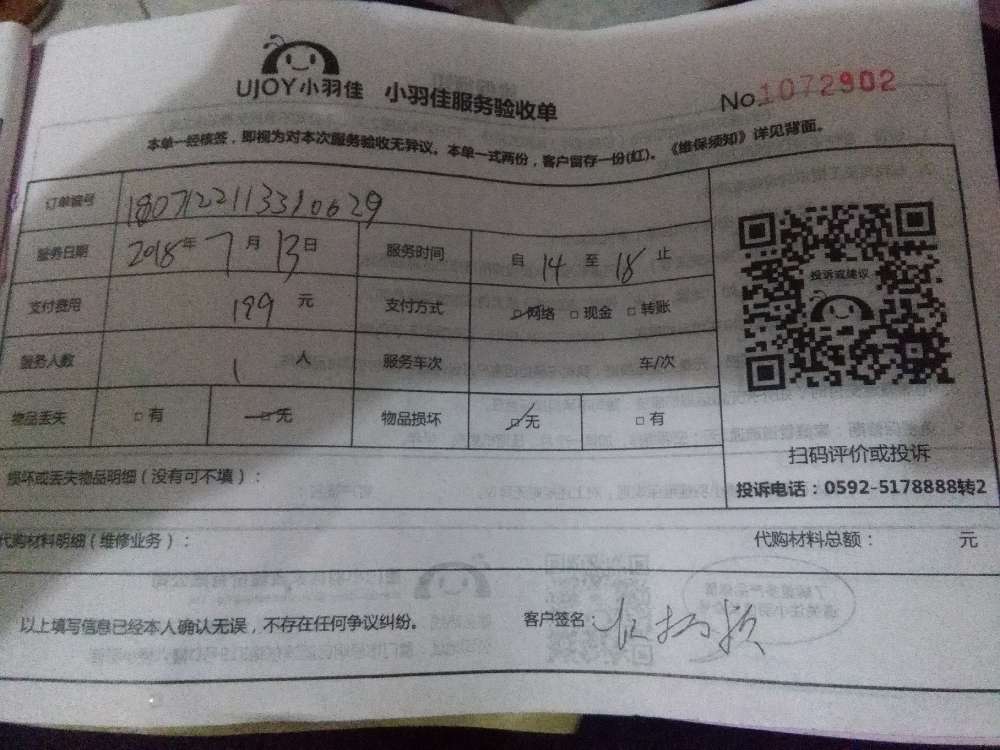 UJOY小羽佳 小羽佳服务验收单 No.1072902
本单一经核签，即视为对本次服务验收无异议。本单一式两份，客户留存一份(红)。《维保须知》详见背面。
订单编号 1807122113310629
服务日期 2018年7月13日 服务时间 自14至18止
支付费用 199元 支付方式 □网络 □现金 □转账
服务人数 1人 服务车次 车/次
物品丢失 □有 □无 物品损坏 □无 □有
投诉或建议
扫码评价或投诉
投诉电话：0592-5178888转2
损坏或丢失物品明细（没有可不填）：
代购材料明细（维修业务）： 代购材料总额： 元
以上填写信息已经本人确认无误，不存在任何争议纠纷。 客户签名：